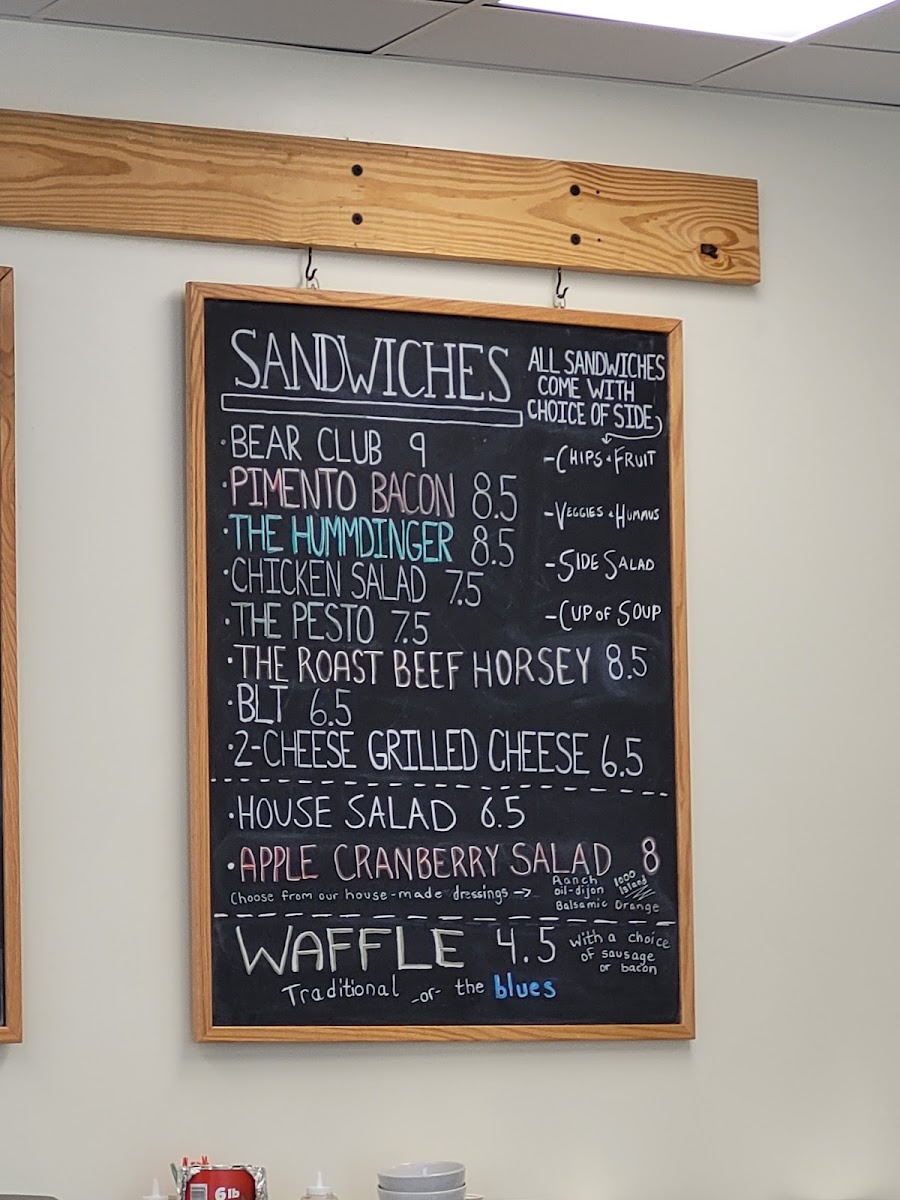 SANDWICHES
ALL SANDWICHES
COME WITH
CHOICE OF SIDE
- CHIPS & FRUIT
- VEGGIES & HUMMUS
- SIDE SALAD
- CUP OF SOUP
· BEAR CLUB 9
· PIMENTO BACON 8.5
· THE HUMMDINGER 8.5
· CHICKEN SALAD 7.5
· THE PESTO 7.5
· THE ROAST BEEF HORSEY 8.5
· BLT 6.5
· 2-CHEESE GRILLED CHEESE 6.5
· HOUSE SALAD 6.5
· APPLE CRANBERRY SALAD 8
Choose from our house-made dressings →
Ranch
oil-dijon
Balsamic
1000
Island
Orange
WAFFLE 4.5
with a choice
of sausage
or bacon
Traditional -or- the blues
6 lb